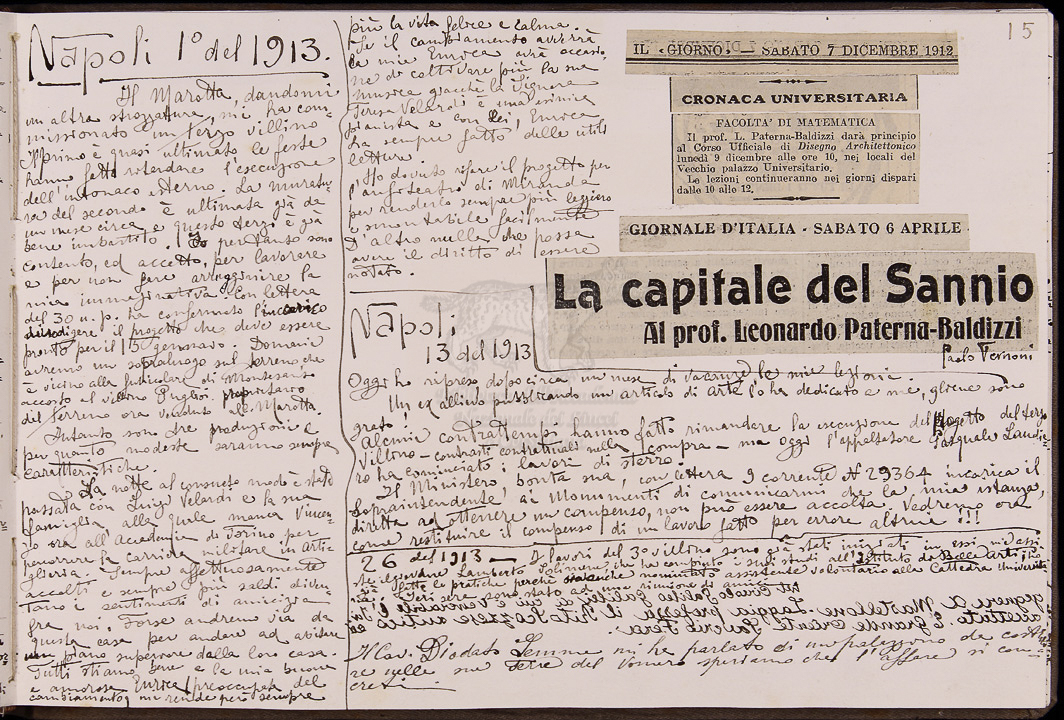 Napoli 1º del 1913.
Il Marotta, dandomi
un altra strozzatura, mi ha com
missionato un terzo villino -
Il primo è quasi ultimato le feste
hanno fatto ritardare l'esecuzione
dell'intonaco esterno. La muratu-
ra del secondo è ultimata già da
un mese circa e questo terzo è già
bene imbastito. Io pertanto sono
contento, ed accetto, per lavorare
e per non fare arrugginire la
mia immaginativa. Con lettera
del 30 a. p. ha confermato l'incarico
di redigere il progetto che deve essere
pronto pel 15 gennaro. Domani
avremo un sopraluogo sul terreno che
è vicino alla funicolare di Montesanto
accosto al villino Puglisi, proprietario
del terreno ora venduto alla Marotta.
Intanto sono tre produzioni e
per quanto modeste saranno sempre
caratteristiche.
La notte al consueto modo è stata
passata con Luigi Velardi e la sua
famiglia, alla quale manca Vincen-
zo ora all'Accademia di Torino per
percorrere la carriera militare in Arti-
glieria. Sempre affettuosamente
accolti e sempre più saldi diven
tano i sentimenti di amicizia
fra noi. Forse andremo via da
questa casa per andare ad abitare
un piano superiore dalla loro casa.
Tutti stiamo bene e la mia buona
e amorosa Enrica (preoccupata del
cambiamento) mi rende però sempre
più la vita felice e calma.
Se il cambiamento avverrà
la mia Enrica avrà occasio-
ne di coltivare più la sua
musica giacchè la Signora
Teresa Velardi è una esimia
pianista e con lei, Enrica
ha sempre fatto delle utili
letture.
Ho dovuto rifare il progetto per
l'anfiteatro di Miranda
per renderlo sempre più leggiero
e smontabile facilmente
D'altro nulla che possa
avere il diritto di essere
notato.
15
IL «GIORNO» — SABATO 7 DICEMBRE 1912
CRONACA UNIVERSITARIA
FACOLTA' DI MATEMATICA
Il prof. L. Paterna-Baldizzi darà principio
al Corso Ufficiale di Disegno Architettonico
lunedì 9 dicembre alle ore 10, nei locali del
Vecchio palazzo Universitario.
Le lezioni continueranno nei giorni dispari
dalle 10 alle 12.
GIORNALE D'ITALIA - SABATO 6 APRILE
La capitale del Sannio
Al prof. Leonardo Paterna-Baldizzi
Paolo Vernoni
Napoli
13 del 1913
Oggi ho ripreso dopo circa un mese di vacanze le mie lezioni.
Un ex allievo pubblicando un articolo di arte l'ha dedicato a me, gliene sono
grato!
Alcuni contrattempi hanno fatto rimandare la esecuzione del progetto del terzo
Villino - contrasti contrattuali nella compra - ma oggi l'appaltatore Pasquale Laudie-
ro ha cominciato i lavori di sterro.
Il Ministero, bontà sua, con lettera 9 corrente Nº 29364 incarica il
Sopraintendente ai Monumenti di comunicarmi che la mia istanza,
diretta ad ottenere un compenso, non può essere accolta. Vedremo ora
come restituire il compenso di un lavoro fatto per errore altrui!!!
26 del 1913 — I lavori del 3º villino sono già stati iniziati
il giovane Lamberto Solimene che ha compiuto i suoi studi all'Istituto di Belle Arti
fatto le pratiche perchè nominato assistente volontario alla Cattedra Universit.
Ieri sera sono stato ad
Il Cav. Diodato Lemme mi ha parlato di un palazzone da costru-
ire nelle sue terre del Vomero speriamo che l'affare si con-
creti